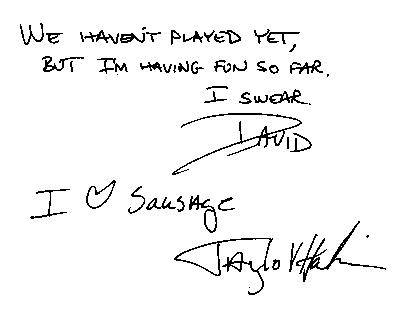 WE HAVEN'T PLAYED YET,
BUT I'M HAVING FUN SO FAR.
I SWEAR
DAVID
I ♡ SAUSAGE
TAYLOR HA